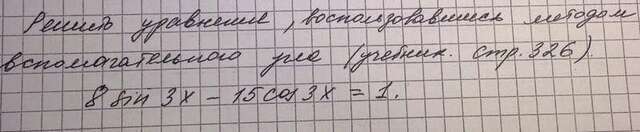 Решить уравнение, воспользовавшись методом
вспомагательного угла (учебник. стр. 326).
8 sin 3x - 15 cos 3x = 1.